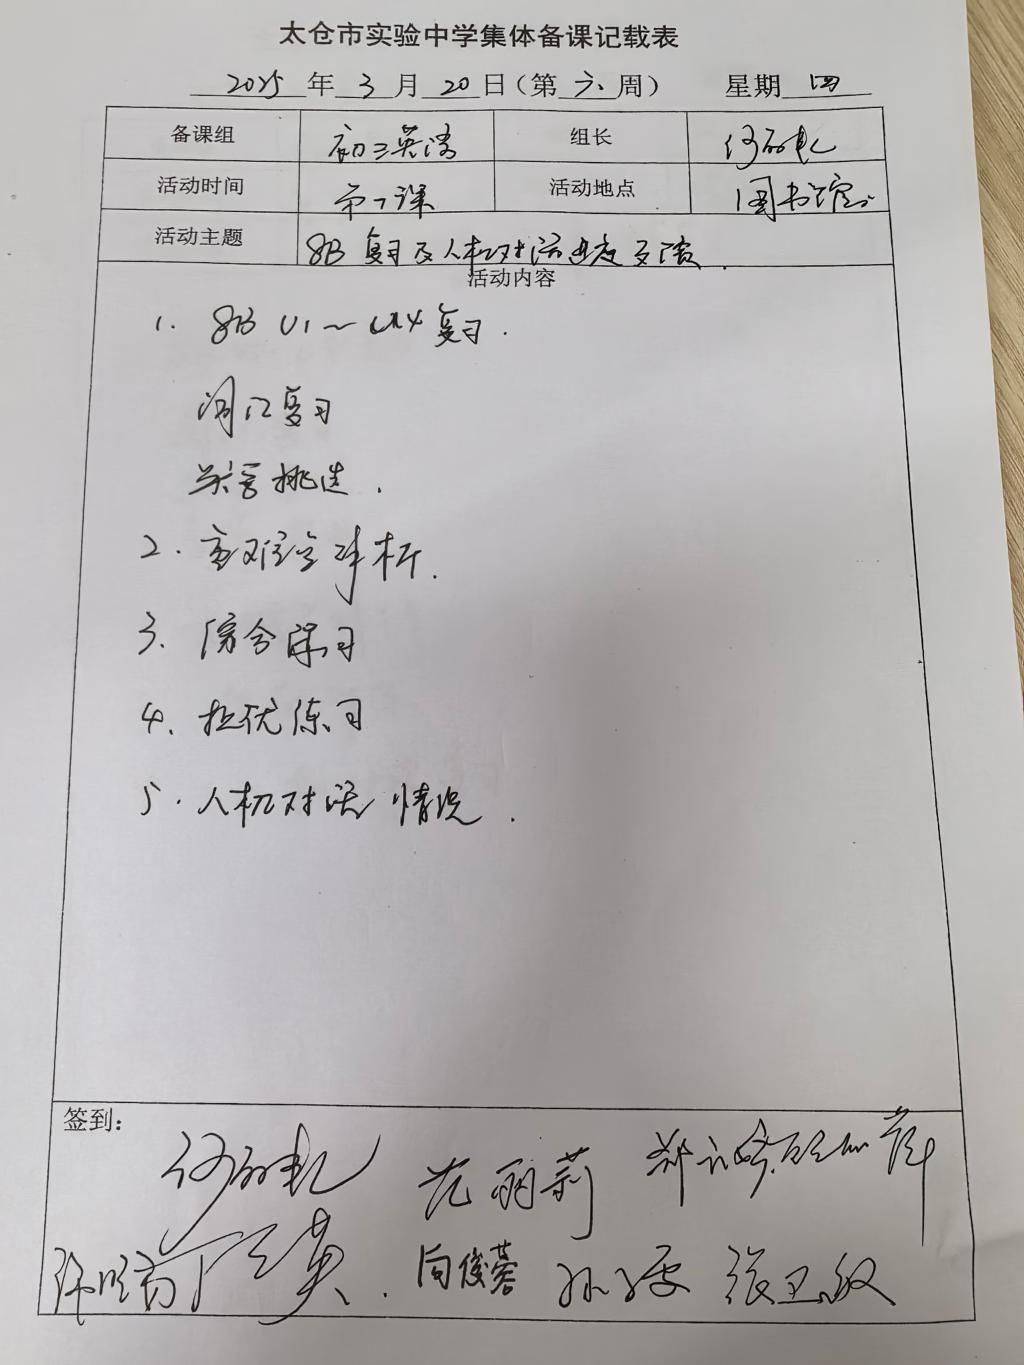 太仓市实验中学集体备课记载表
2025年3月20日（第六周） 星期四
备课组 初三英语 组长
活动时间 第一课 活动地点 图书馆
活动主题 8B 复习及人机对话进度反馈.
活动内容
1. 8B U1～U4 复习.
复习
挑选.
2. 重难点评析.
3. 综合练习
4. 拉优练习
5. 人机对话情况.
签到:
尤丽莉
向俊蓉 张卫敏